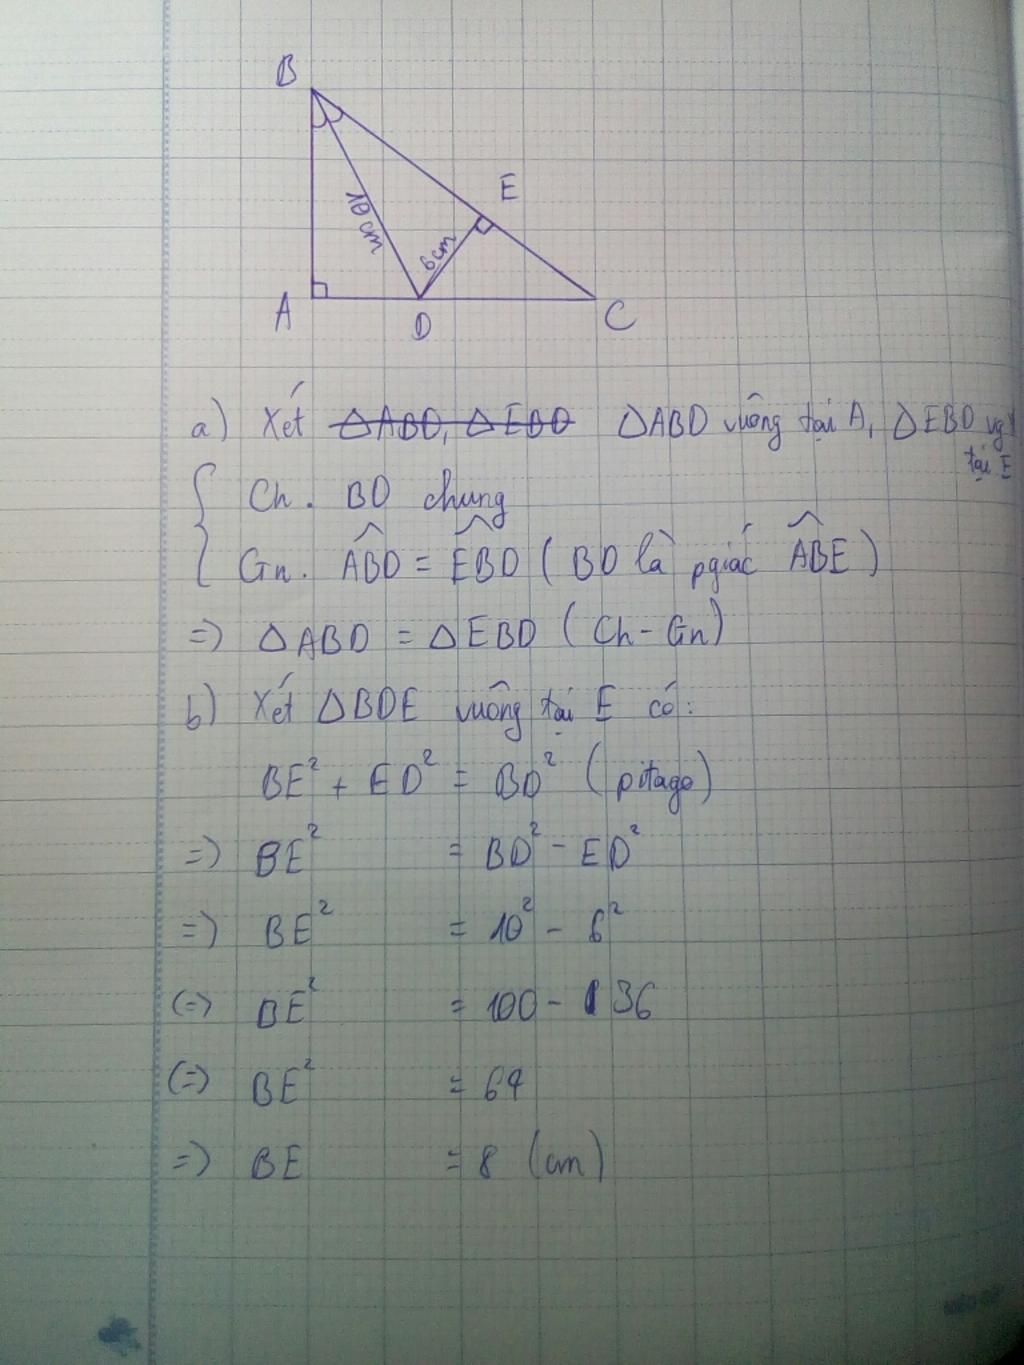 B
E
10 cm
6 cm
A
D
C
a) Xét ΔABD, ΔEBD ΔABD vuông tại A, ΔEBD vg
tại E
Ch. BD chung
Gn. ABD = EBD ( BD là pgiác ABE )
=) ΔABD = ΔEBD ( Ch - Gn )
b) Xét ΔBDE vuông tại E có:
BE² + ED² = BD² ( pitago )
=) BE² = BD² - ED²
=) BE² = 10² - 6²
(=) BE² = 100 - 36
(=) BE² = 64
=) BE = 8 (cm)